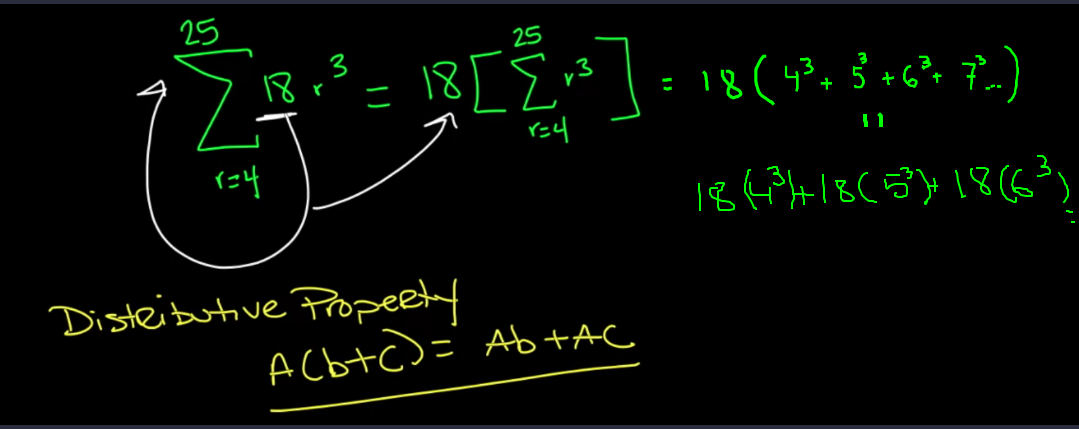 25 Σ r=4 18 r³ = 18 [ 25 Σ r=4 r³ ] = 18 ( 4³ + 5³ + 6³ + 7³... )
=
18(4³)+18(5³)+18(6³)
Distributive Property
A(b+C) = Ab+AC